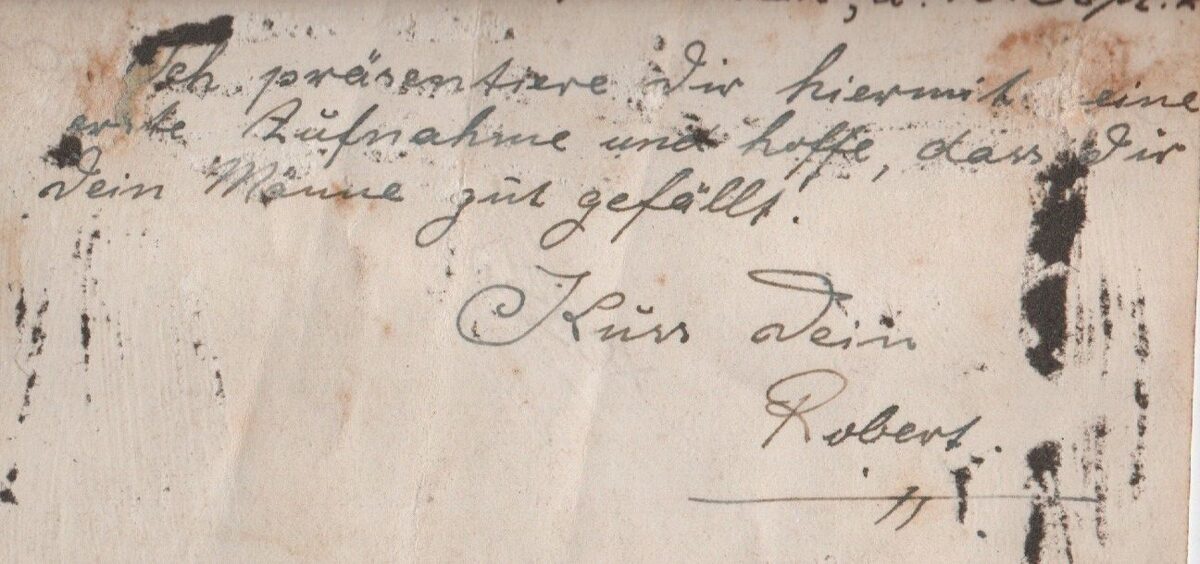 Ich präsentiere Dir hiermit eine
erste Aufnahme und hoffe, dass Dir
Dein Männe gut gefällt.
Kuss Dein
Robert.